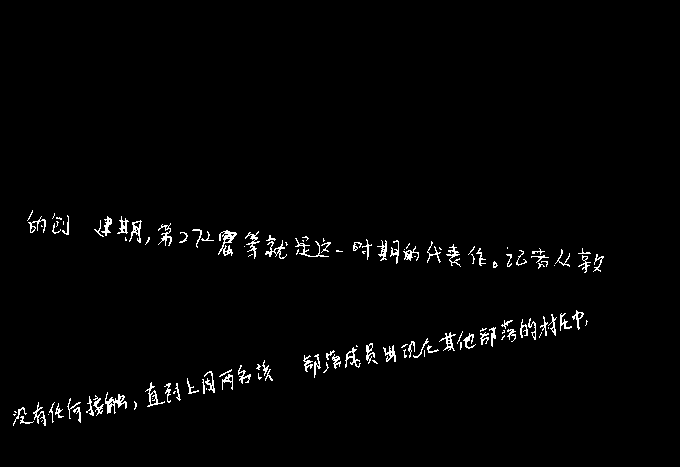 的创建期,第272窟等就是这一时期的代表作。记者从敦
没有任何接触,直到上周两名该部落成员出现在其他部落的村庄中,